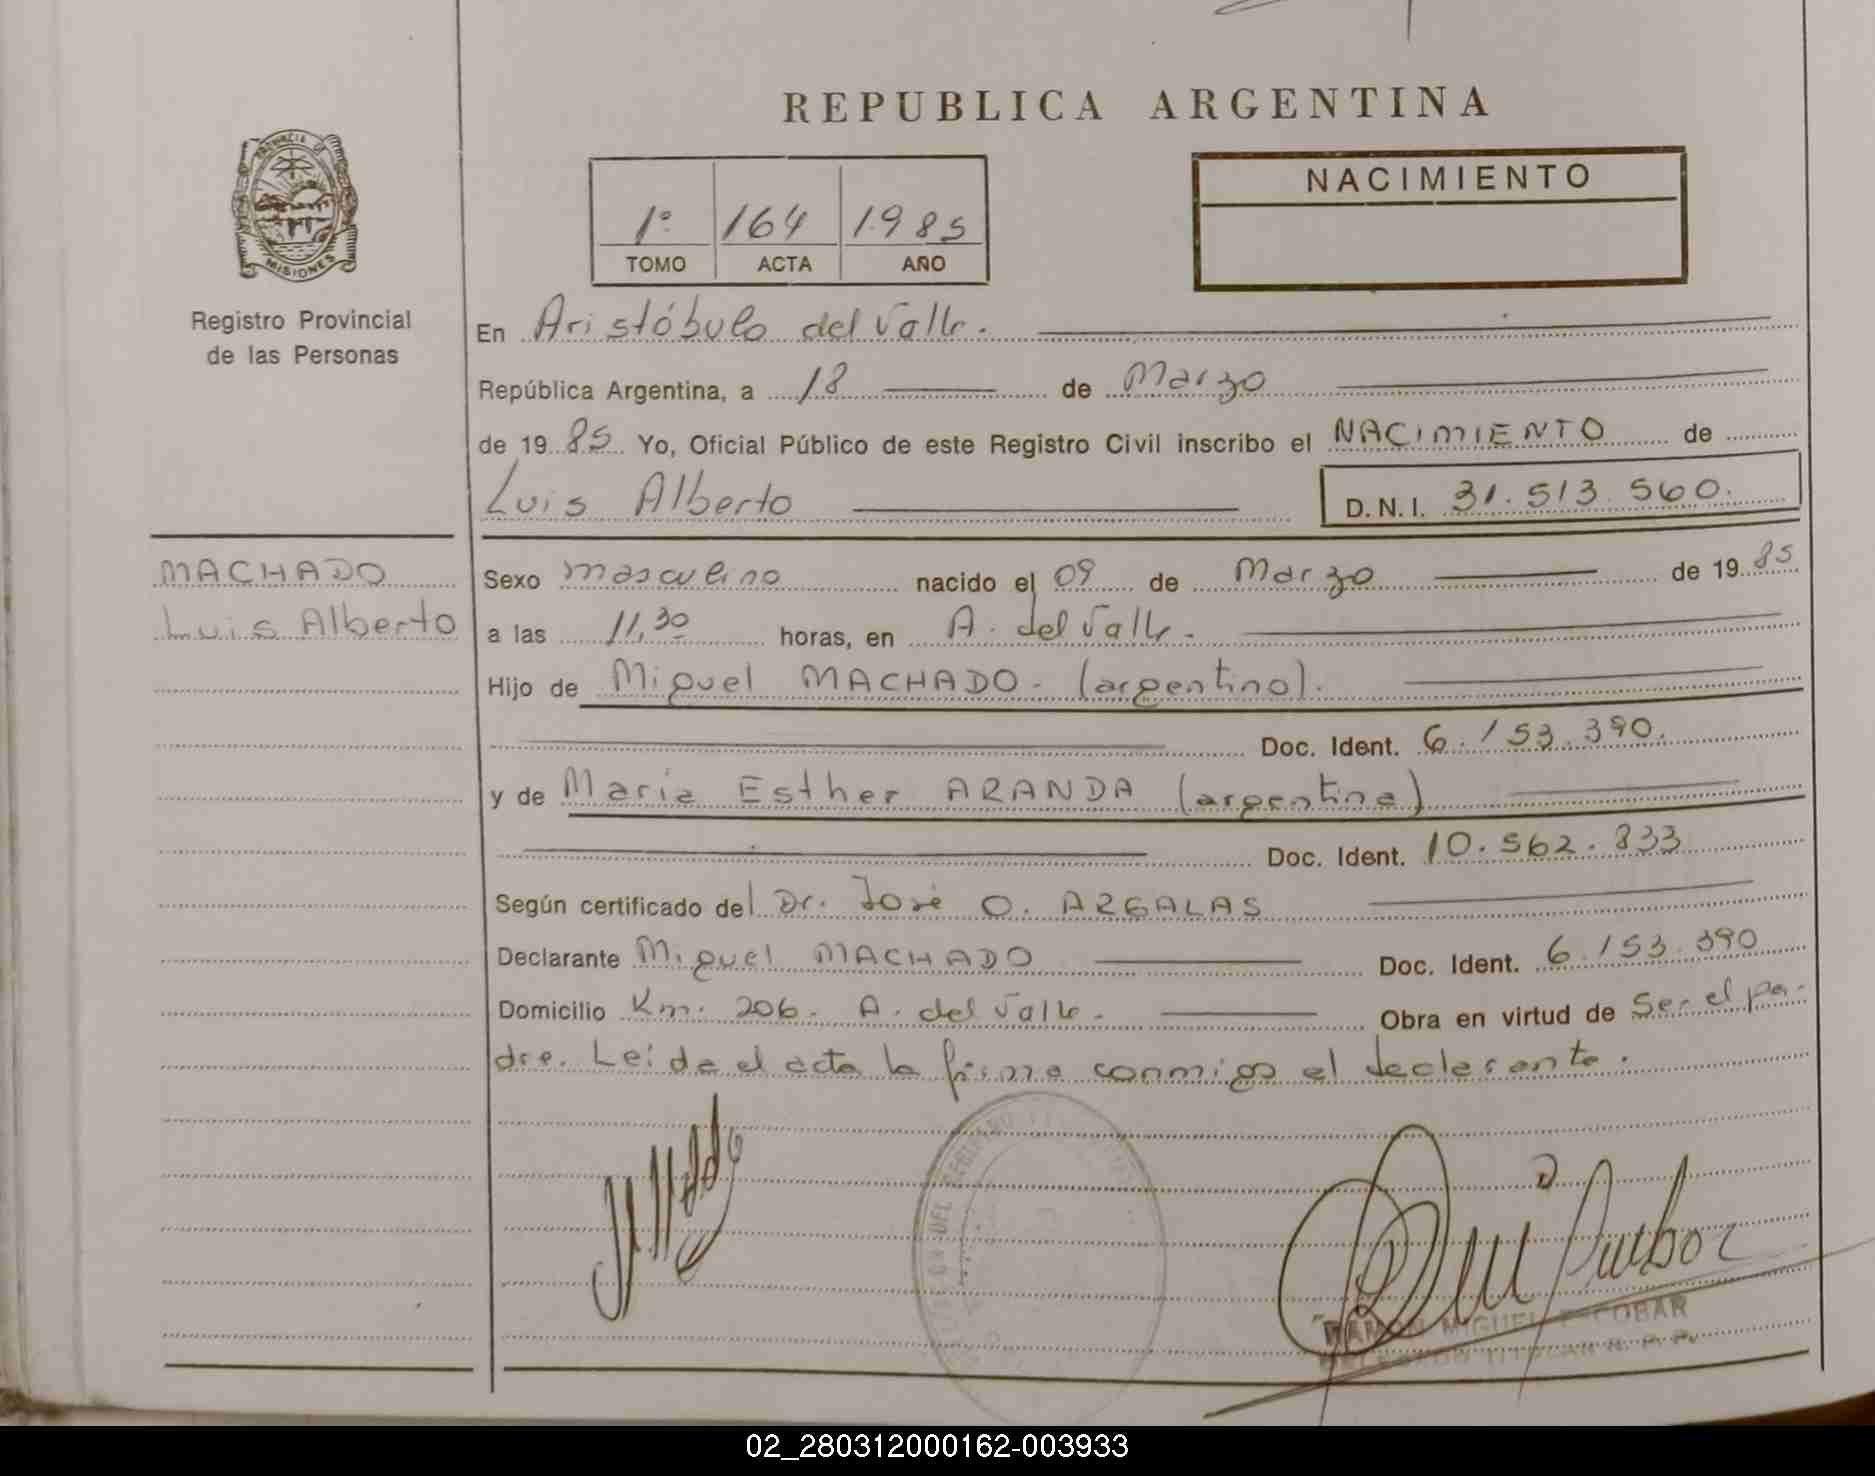 REPUBLICA ARGENTINA
PROVINCIA DE
MISIONES
Registro Provincial
de las Personas
1º 164 1985
TOMO ACTA AÑO
NACIMIENTO
En Aristóbulo del Valle.
República Argentina, a 18 de Marzo
de 19 85 Yo, Oficial Público de este Registro Civil inscribo el NACIMIENTO de
Luis Alberto D.N.I. 31.513.560.
MACHADO
Luis Alberto
Sexo masculino nacido el 09 de Marzo de 19 85
a las 11,30 horas, en A. del Valle.
Hijo de Miguel MACHADO. (argentino).
Doc. Ident. 6.153.390.
y de María Esther ARANDA (argentina)
Doc. Ident. 10.562.833
Según certificado del Dr. José O. ARGALAS
Declarante Miguel MACHADO Doc. Ident. 6.153.390
Domicilio Km. 206. A. del Valle. Obra en virtud de Ser el pa-
dre. Leída el acta la firma conmigo el declarante.
RAMON MIGUEL ESCOBAR
02_280312000162-003933